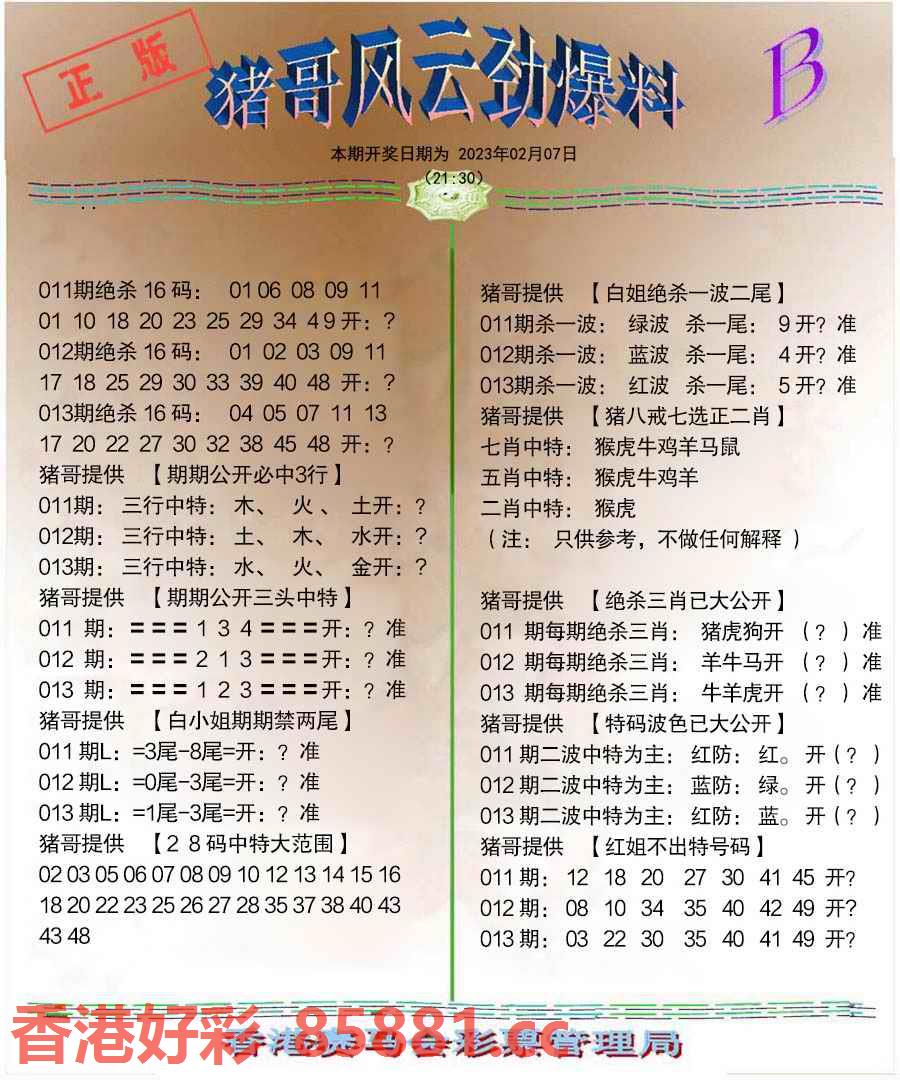 正版
猪哥风云劲爆料
B
本期开奖日期为 2023年02月07日
（21:30）
011期绝杀16码： 01 06 08 09 11
01 10 18 20 23 25 29 34 49开：?
012期绝杀16码： 01 02 03 09 11
17 18 25 29 30 33 39 40 48 开：?
013期绝杀16码： 04 05 07 11 13
17 20 22 27 30 32 38 45 48 开：?
猪哥提供 【期期公开必中3行】
011期： 三行中特： 木、 火、 土开：?
012期： 三行中特： 土、 木、 水开：?
013期： 三行中特： 水、 火、 金开：?
猪哥提供 【期期公开三头中特】
011 期：＝＝＝1 3 4＝＝＝开：? 准
012 期：＝＝＝2 1 3＝＝＝开：? 准
013 期：＝＝＝1 2 3＝＝＝开：? 准
猪哥提供 【白小姐期期禁两尾】
011期L：=3尾-8尾=开：? 准
012期L：=0尾-3尾=开：? 准
013期L：=1尾-3尾=开：? 准
猪哥提供 【２８码中特大范围】
02 03 05 06 07 08 09 10 12 13 14 15 16
18 20 22 23 25 26 27 28 35 37 38 40 43
43 48
猪哥提供 【白姐绝杀一波二尾】
011期杀一波： 绿波 杀一尾： 9开? 准
012期杀一波： 蓝波 杀一尾： 4开? 准
013期杀一波： 红波 杀一尾： 5开? 准
猪哥提供 【猪八戒七选正二肖】
七肖中特： 猴虎牛鸡羊马鼠
五肖中特： 猴虎牛鸡羊
二肖中特： 猴虎
（注： 只供参考，不做任何解释 ）
猪哥提供 【绝杀三肖已大公开】
011 期每期绝杀三肖： 猪虎狗开 （? ）准
012 期每期绝杀三肖： 羊牛马开 （? ）准
013 期每期绝杀三肖： 牛羊虎开 （? ）准
猪哥提供 【特码波色已大公开】
011期二波中特为主： 红防： 红。 开（? ）
012期二波中特为主： 蓝防： 绿。 开（? ）
013期二波中特为主： 红防： 蓝。 开（? ）
猪哥提供 【红姐不出特号码】
011 期： 12 18 20 27 30 41 45 开?
012 期： 08 10 34 35 40 42 49 开?
013 期： 03 22 30 35 40 41 49 开?
香港好彩 85881.cc
香港赛马会彩票管理局